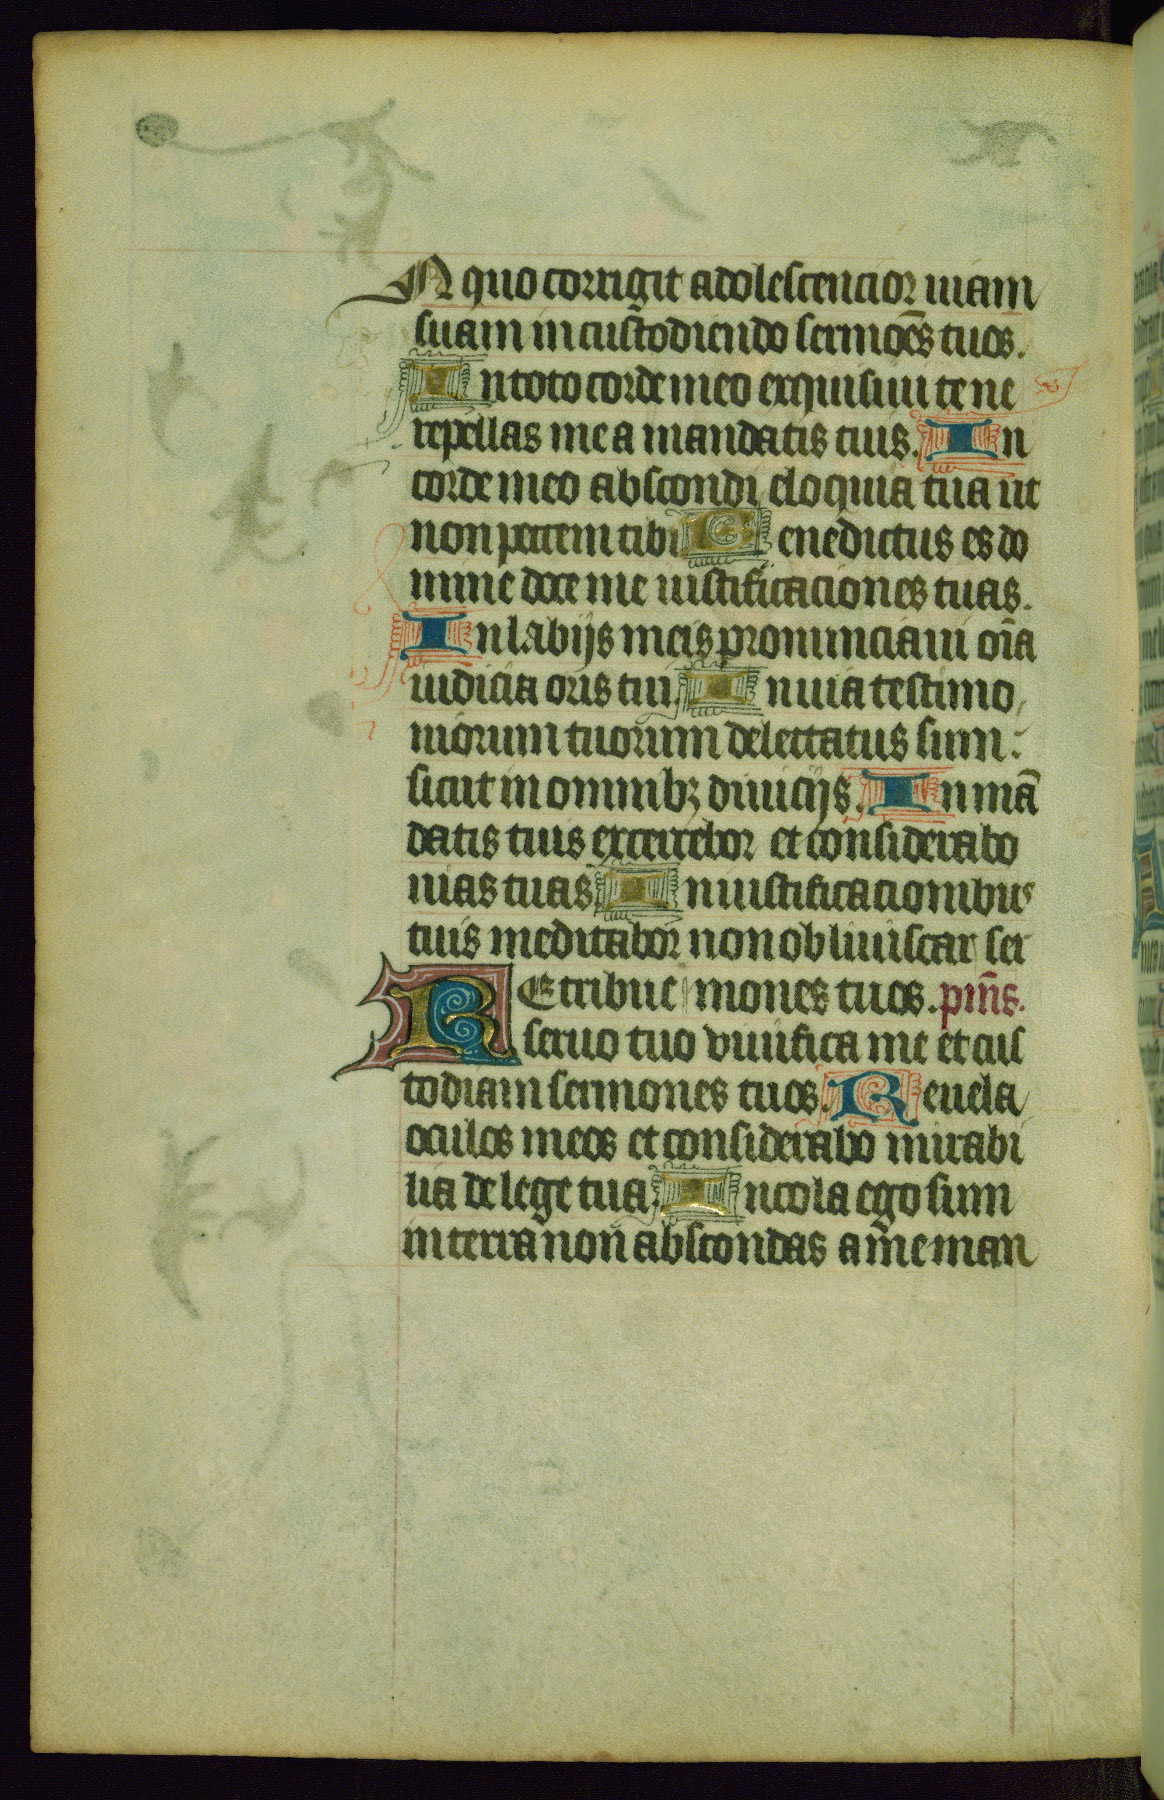 In quo corrigit adolescencior uiam
suam in custodiendo sermoēs tuos.
In toto corde meo exquisiui te ne
repellas me a mandatis tuis. In
corde meo abscondi eloquia tua ut
non peccem tibi Benedictus es do
mine doce me iustificaciones tuas.
In labijs meis pronunciaui oīa
iudicia oris tui. In uia testimo
niorum tuorum delectatus sum
sicut in omnibꝫ diuicijs. In mā
datis tuis exercebor et considerabo
uias tuas In iustificacionibus
tuis meditabor non obliuiscar ser
Retribue mones tuos. pm̄s.
seruo tuo viuifica me et cus
todiam sermones tuos. Reuela
oculos meos et considerabo mirabi
lia de lege tua. Incola ego sum
in terra non abscondas a me man